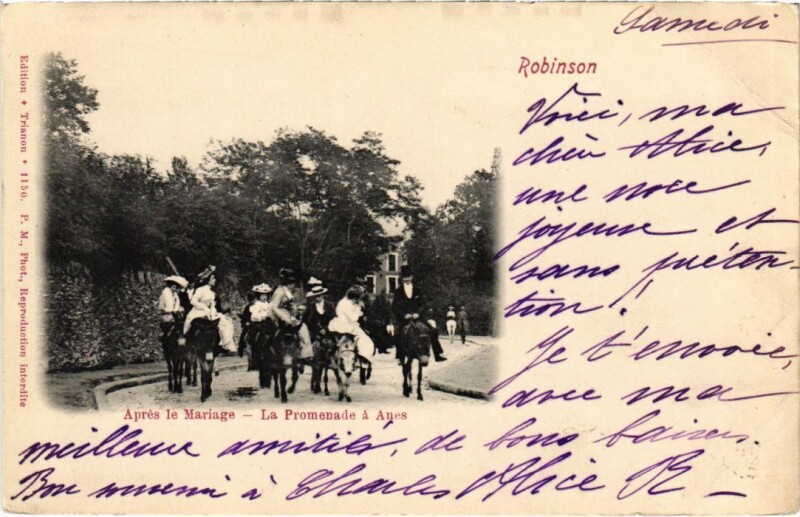 Samedi
Robinson
Voici, ma
chère Alice,
une noce
joyeuse et
sans préten-
tion !
Je t'envoie,
avec ma
meilleure amitié, de bons baisers.
Bon souvenir à Charles Alice R
Après le Mariage — La Promenade à Anes
Edition * Trianon * 1150. P. M., Phot., Reproduction interdite